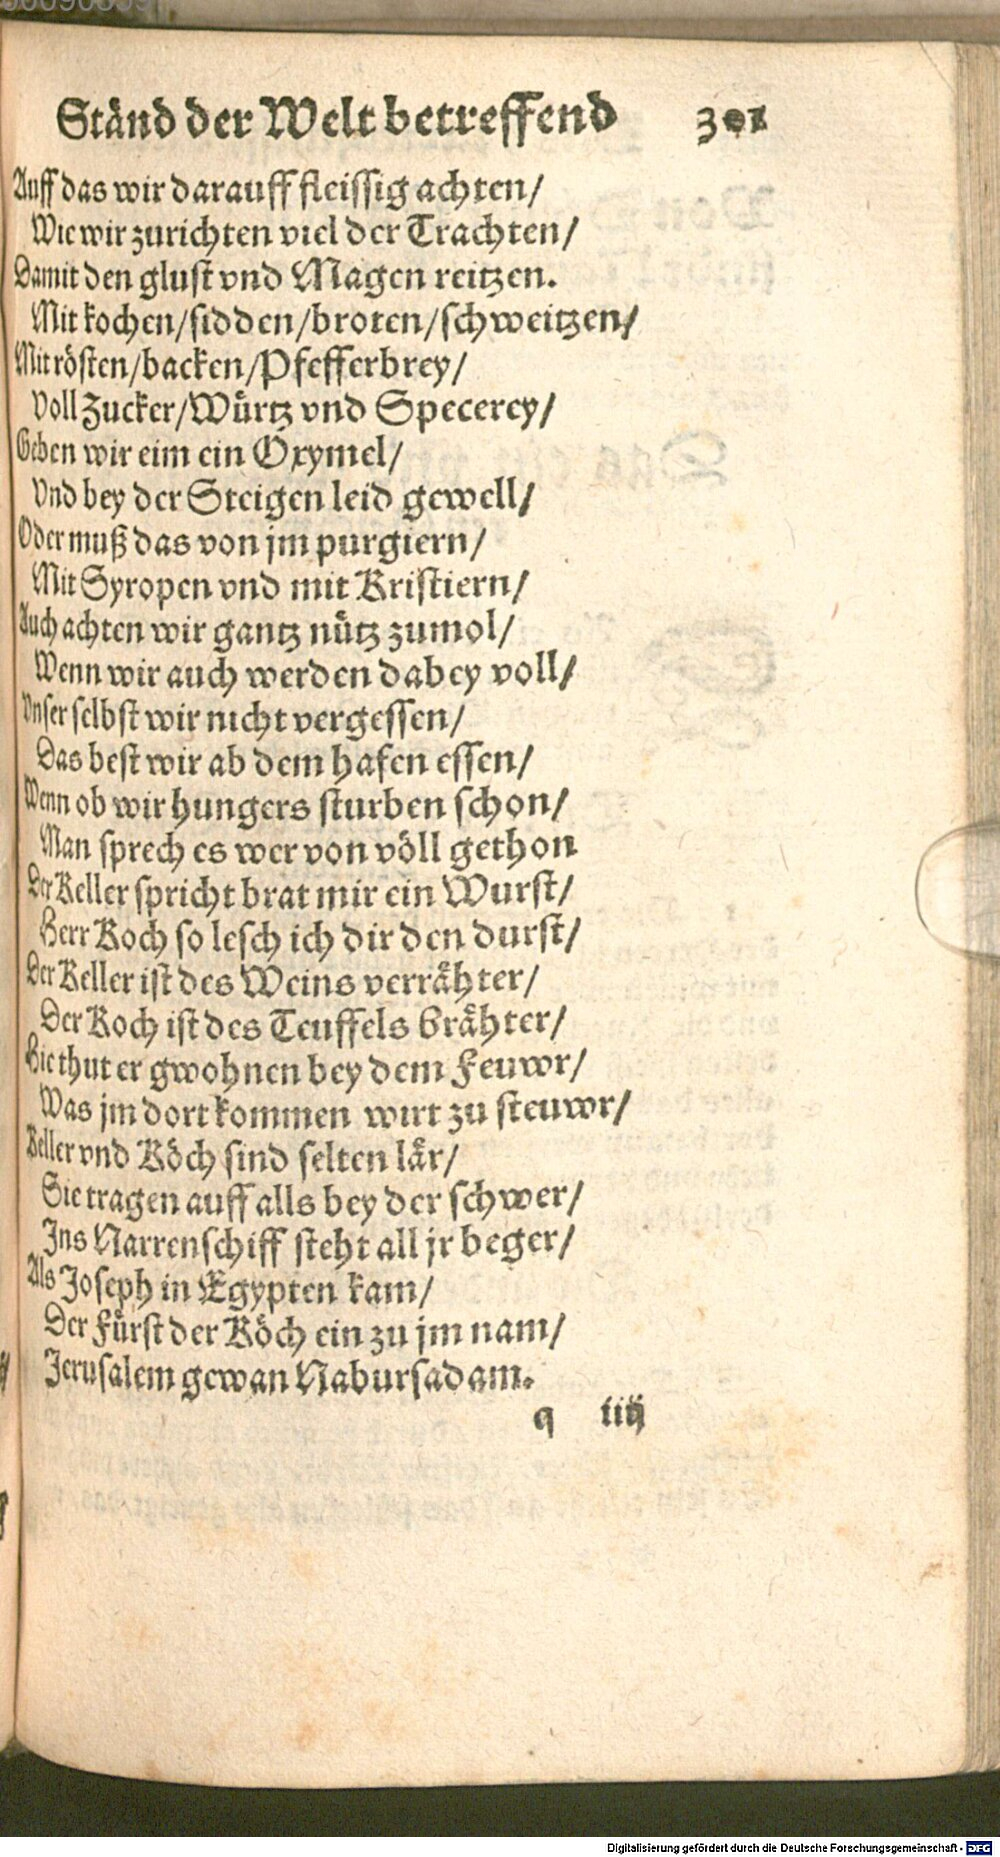 Ständ der Welt betreffend 301
Auff das wir darauff fleissig achten/
Wie wir zurichten viel der Trachten/
Damit den glust vnd Magen reitzen.
Mit kochen/sidden/broten/schweitzen/
Mit rösten/backen/Pfefferbrey/
Voll Zucker/Würtz vnd Specerey/
Geben wir eim ein Oxymel/
Vnd bey der Steigen leid gewell/
Oder muß das von jm purgiern/
Mit Syropen vnd mit Kristiern/
Auch achten wir gantz nütz zumol/
Wenn wir auch werden dabey voll/
Vnser selbst wir nicht vergessen/
Das best wir ab dem hafen essen/
Wenn ob wir hungers sturben schon/
Man sprech es wer von völl gethon
Der Keller spricht brat mir ein Wurst/
Herr Koch so lesch ich dir den durst/
Der Keller ist des Weins verrähter/
Der Koch ist des Teuffels Brähter/
Hie thut er gwohnen bey dem Feuwr/
Was jm dort kommen wirt zu steuwr/
Keller vnd Köch sind selten lär/
Sie tragen auff alls bey der schwer/
Ins Narrenschiff steht all jr beger/
Als Joseph in Egypten kam/
Der Fürst der Köch ein zu jm nam/
Jerusalem gewan Nabursadam.
q iiij
Digitalisierung gefördert durch die Deutsche Forschungsgemeinschaft - DFG